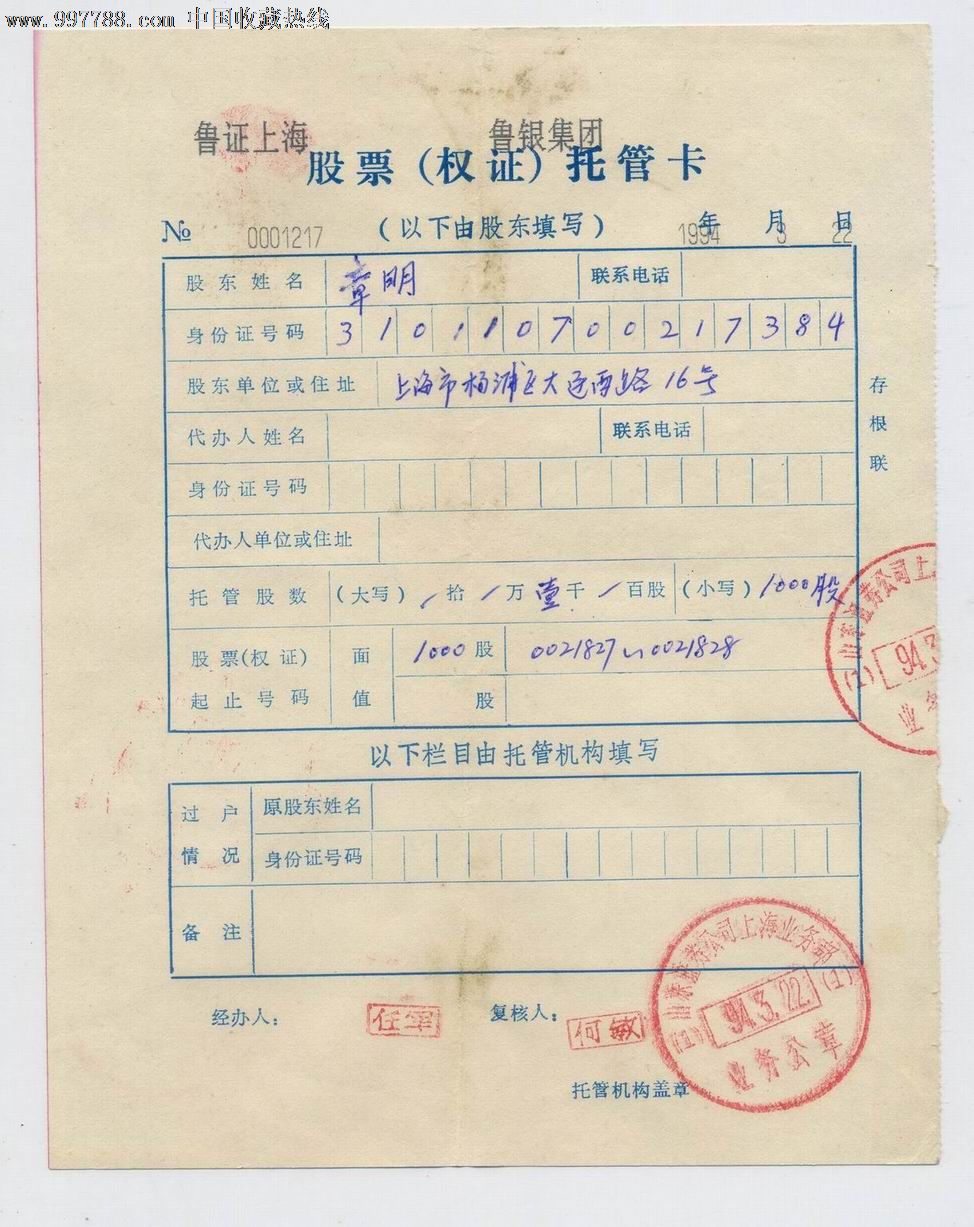 www.997788.com 中国收藏热线
鲁证上海 鲁银集团
股票(权证)托管卡
№ 0001217 (以下由股东填写) 1994年3月22日
股东姓名 章明 联系电话
身份证号码 310110700217384
股东单位或住址 上海市杨浦区大连西路16号
代办人姓名 联系电话
身份证号码
代办人单位或住址
托管股数 (大写) / 拾 / 万 壹 千 / 百股 (小写) 1000股
股票(权证) 面 1000 股 0021827~0021828
起止号码 值 股
存根联
山东证券公司上
(1) 94.3
业务
以下栏目由托管机构填写
过户 原股东姓名
情况 身份证号码
备注
山东证券公司上海业务部
(1) 94.3.22. (1)
业务公章
经办人: 任军 复核人: 何敏
托管机构盖章